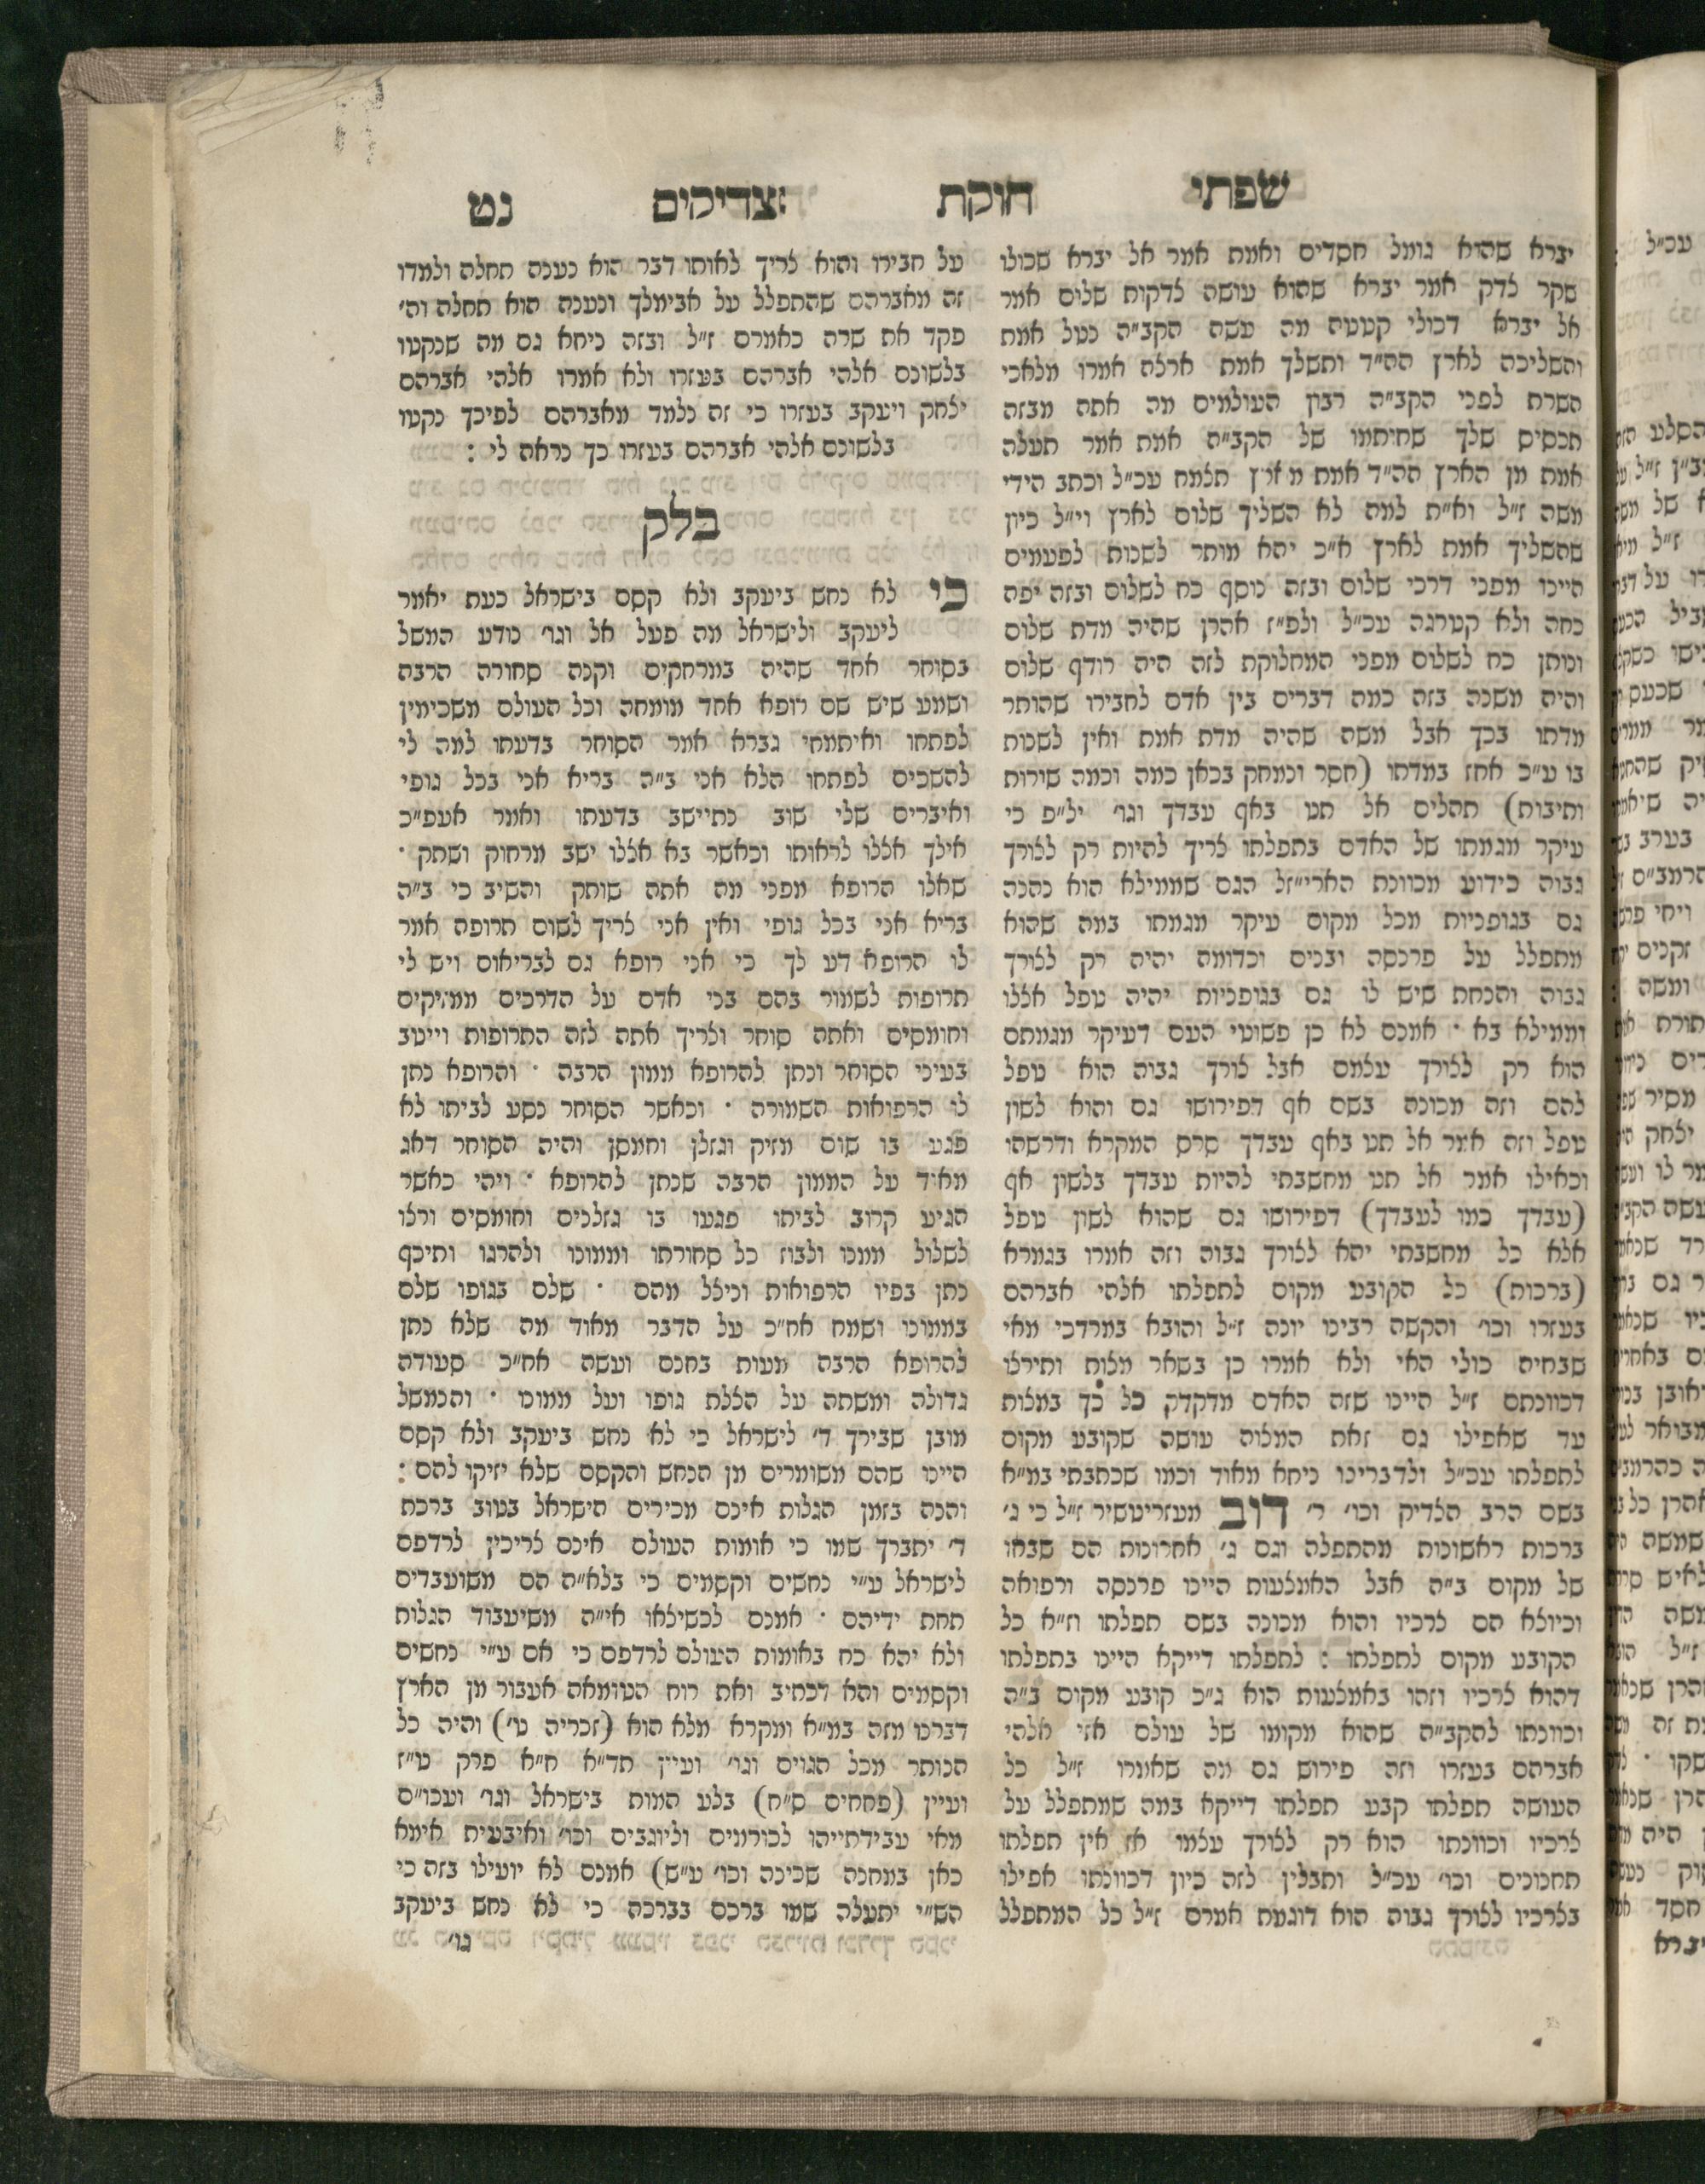 שפתי חוקת צדיקים נט
יברא שהיא גומל חסדים ואמת אמר אל יברא שכולו
שקר צדק אמר יברא שהוא עושה צדקות שלום אמר
אל יברא דכולי קטטה מה עשה הקב"ה נטל אמת
והשליכה לארץ הה"ד ותשלך אמת ארצה אמרו מלאכי
השרת לפני הקב"ה רבון העולמים מה אתה מבזה
תכסים שלך שחיתמו של הקב"ה אמת אמר תעלה
אמת מן הארץ הה"ד אמת מארץ תצמח עכ"ל וכתב הידי
משה ז"ל וא"ת למה לא השליך שלום לארץ וי"ל כיון
שהשליך אמת לארץ א"כ יהא מותר לשנות לפעמים
היינו מפני דרכי שלום ובזה נוסף כח לשלום ובזה יפה
כחה ולא קטרגה עכ"ל ולפ"ז אהרן שהיה מדת שלום
ונותן כח לשלום מפני המחלוקת לזה היה רודף שלום
והיה משנה בזה כמה דברים בין אדם לחבירו שהותר
מדתו בכך אבל משה שהיה מדת אמת ואין לשנות
בו ע"כ אחז במדתו (חסר ונמחק בכאן כמה וכמה שורות
ותיבות) תהלים אל תט באף עבדך וגו' יל"פ כי
עיקר מגמתו של האדם בתפלתו צריך להיות רק לצורך
גבוה כידוע מכוונת האריז"ל הגם שממילא הוא נהנה
גם בגופניות מכל מקום עיקר מגמתו במה שהוא
מתפלל על פרנסה ובנים וכדומה יהיה רק לצורך
גבוה והנחת שיש לו גם בגופניות יהיה טפל אצלו
וממילא בא · אמנם לא כן פשוטי העם דעיקר מגמתם
הוא רק לצורך עצמם אבל צורך גבוה הוא טפל
להם וזה מכונה בשם אף דפירושו גם והוא לשון
טפל וזה אמר אל תט באף עבדך סרס המקרא ודרשהו
וכאילו אמר אל תט מחשבתי להיות עבדך בלשון אף
(עבדך כמו לעבדך) דפירושו גם שהוא לשון טפל
אלא כל מחשבתי יהא לצורך גבוה וזה אמרו בגמרא
(ברכות) כל הקובע מקום לתפלתו אלהי אברהם
בעזרו וכו' והקשה רבינו יונה ז"ל והובא במרדכי מאי
שבחיה כולי האי ולא אמרו כן בשאר מצות ותירצו
דכוונתם ז"ל היינו שזה האדם מדקדק כל כך במצות
עד שאפילו גם זאת המצוה עושה שקובע מקום
לתפלתו עכ"ל ולדברינו ניחא מאוד וכמו שכתבתי במ"א
בשם הרב הצדיק וכו' ר' דוב מעזריטשיר ז"ל כי ג'
ברכות ראשונות מהתפלה וגם ג' אחרונות הם שבחו
של מקום ב"ה אבל האמצעות היינו פרנסה ורפואה
וכיוצא הם צרכיו והוא מכונה בשם תפלתו וז"א כל
הקובע מקום לתפלתו : לתפלתו דייקא היינו בתפלתו
דהוא צרכיו וזהו באמצעות הוא ג"כ קובע מקום ב"ה
וכוונתו להקב"ה שהוא מקומו של עולם אזי אלהי
אברהם בעזרו וזה פירוש גם מה שאמרו ז"ל כל
העושה תפלתו קבע תפלתו דייקא במה שמתפלל על
צרכיו וכוונתו הוא רק לצורך עצמו אז אין תפלתו
תחנונים וכו' עכ"ל ותבלין לזה כיון דכוונתו אפילו
בצרכיו לצורך גבוה הוא דוגמת אמרם ז"ל כל המתפלל
על חבירו והוא צריך לאותו דבר הוא נענה תחלה ולמדו
זה מאברהם שהתפלל על אבימלך ונענה הוא תחלה וה'
פקד את שרה כאמרם ז"ל ובזה ניחא גם מה שנקטו
בלשונם אלהי אברהם בעזרו ולא אמרו אלהי אברהם
יצחק ויעקב בעזרו כי זה נלמד מאברהם לפיכך נקטו
בלשונם אלהי אברהם בעזרו כך נראה לי :
בלק
כי לא נחש ביעקב ולא קסם בישראל כעת יאמר
ליעקב ולישראל מה פעל אל וגו' נודע המשל
בסוחר אחד שהיה במרחקים וקנה סחורה הרבה
ושמע שיש שם רופא אחד מומחה וכל העולם משכימין
לפתחו ואיתמחי גברא אמר הסוחר בדעתו למה לי
להשכים לפתחו הלא אני ב"ה בריא אני בכל גופי
ואיברים שלי שוב נתיישב בדעתו ואמר אעפ"כ
אילך אצלו לראותו וכאשר בא אצלו ישב מרחוק ושתק ·
שאלו הרופא מפני מה אתה שותק והשיב כי ב"ה
בריא אני בכל גופי ואין אני צריך לשום תרופה אמר
לו הרופא דע לך כי אני רופא גם לבריאום ויש לי
תרופות לשמור בהם בני אדם על הדרכים ממזיקים
וחומסים ואתה סוחר וצריך אתה לזה התרופות וייטב
בעיני הסוחר ונתן להרופא ממון הרבה · והרופא נתן
לו הרפואות השמורה · וכאשר הסוחר נסע לביתו לא
פגע בו שום מזיק וגזלן וחמסן והיה הסוחר דאג
מאיד על הממון הרבה שנתן להרופא · ויהי כאשר
הגיע קרוב לביתו פגעו בו גזלנים וחומסים ורצו
לשלול ממנו ולבוז כל סחורתו וממונו ולהרגו ותיכף
נתן בפיו הרפואות וניצל מהם · שלם בגופו שלם
בממונו ושמח אח"כ על הדבר מאוד מה שלא נתן
להרופא הרבה מעות בחנם ועשה אח"כ סעודה
גדולה ומשתה על הצלת גופו ועל ממונו · והנמשל
מובן שבירך ד' לישראל כי לא נחש ביעקב ולא קסם
היינו שהם משומרים מן הנחש והקסם שלא יזיקו להם :
והנה בזמן הגלות אינם מכירים הישראל בטוב ברכת
ד' יתברך שמו כי אומות העולם אינם צריכין לרדפם
לישראל ע"י נחשים וקסמים כי בלא"ה הם משועבדים
תחת ידיהם · אמנם לכשיצאו אי"ה משיעבוד הגלות
ולא יהא כח באומות העולם לרדפם כי אם ע"י נחשים
וקסמים והא דכתיב ואת רוח הטומאה אעבור מן הארץ
דברנו מזה במ"א ומקרא מלא הוא (זכריה ט') והיה כל
הנותר מכל הגוים וגו' ועיין תד"א ח"א פרק ט"ז
ועיין (פסחים ס"ח) בלע המות בישראל וגו' ועכו"ם
מאי עבידתייהו לכורמים וליוגבים וכו' ואיבעית אימא
כאן במחנה שכינה וכו' ע"ש) אמנם לא יועילו בזה כי
הש"י יתעלה שמו ברכם בברכה כי לא נחש ביעקב
גו'